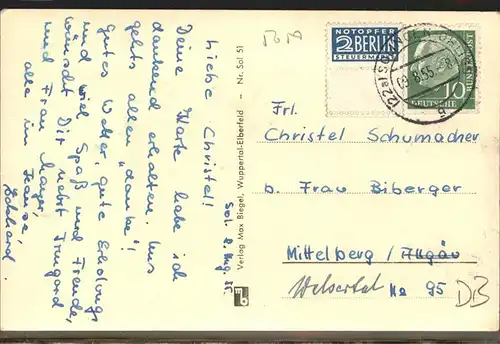 Sol. 8. Aug. 55
Liebe Christel!
Deine Karte habe ich
dankend erhalten. Uns
gehts allen "danke"!
Gutes Wetter, gute Erholung
und viel Spaß und Freude,
wünscht Dir nebst Irmgard
und Frau Mayer,
alle im Hause,
Eckhard.
Verlag Max Biegel, Wuppertal-Elberfeld – Nr. Sol 51
NOTOPFER
2 BERLIN
STEUERMARKE
10
DEUTSCHE
BUNDESPOST
Frl.
Christel Schumacher
b. Frau Biberger
Mittelberg / Allgäu
Walsertal No 95
DB